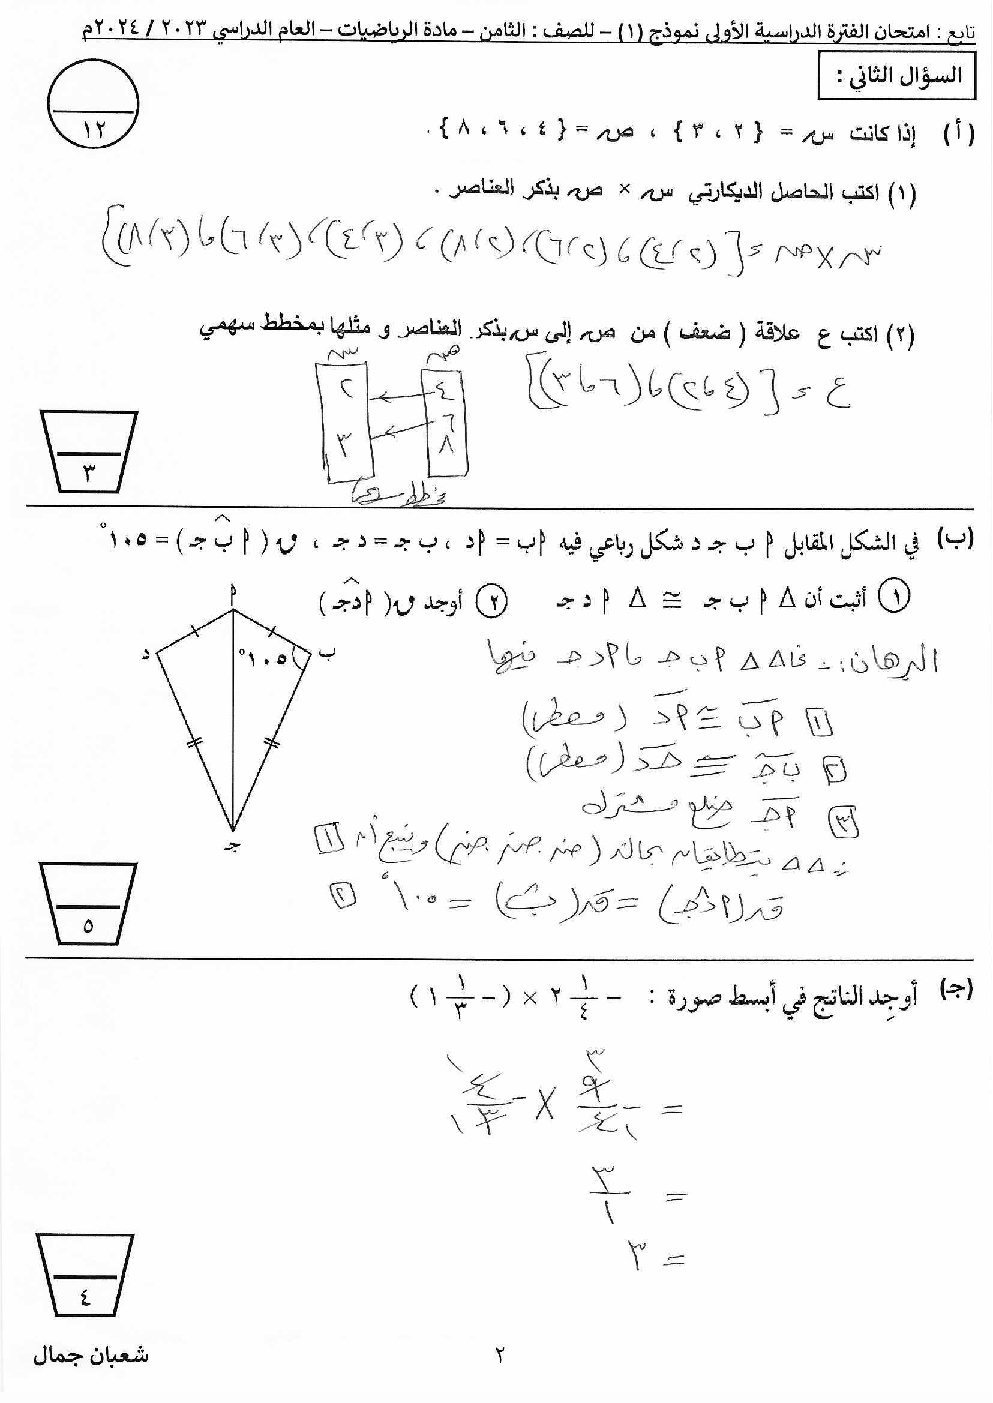 تابع : امتحان الفترة الدراسية الأولى نموذج (١) – للصف : الثامن – مادة الرياضيات – العام الدراسي ٢٠٢٣ / ٢٠٢٤م
السؤال الثاني :
١٢
(أ) إذا كانت س = { ٢ ، ٣ } ، ص = { ٤ ، ٦ ، ٨ } .
(١) اكتب الحاصل الديكارتي س × ص بذكر العناصر .
س × ص = {(٢،٤)،(٢،٦)،(٢،٨)،(٣،٤)،(٣،٦)،(٣،٨)}
(٢) اكتب ع علاقة ( ضعف ) من ص إلى س بذكر العناصر و مثلها بمخطط سهمي
ع = {(٤،٢)،(٦،٣)}
ص س
٤ ٢
٦
٨ ٣
مخطط سهمي
٣
(ب) في الشكل المقابل م ب جـ د شكل رباعي فيه م ب = م د ، ب جـ = د جـ ، ق ( م ب̂ جـ ) = ١٠٥°
① أثبت أن Δ م ب جـ ≅ Δ م د جـ ② أوجد ق( م د̂ جـ )
م
ب
د
١٠٥°
جـ
البرهان :- ΔΔ م ب جـ ، م د جـ فيها
١ م ب ≅ م د (معطى)
٢ ب جـ ≅ جـ د (معطى)
٣ م جـ ضلع مشترك
∴ ΔΔ يتطابقان بحالة (ض.ض.ض) وينتج أن ١
ق(م د̂ جـ) = ق(ب̂) = ١٠٥° ٢
٥
(جـ) أوجِد الناتج في أبسط صورة : – ١/٤ ٢ × ( – ١/٣ ١ )
= –٩/٤ × –٤/٣
= ٣/١
= ٣
٤
٢
شعبان جمال